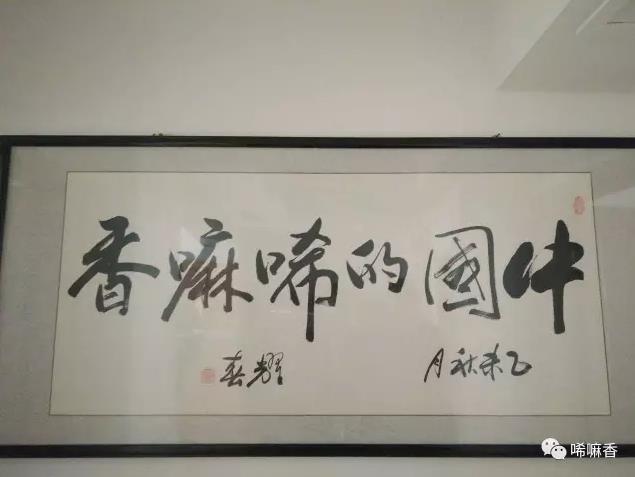 中國的唏嘛香
乙未秋月
耀春
唏嘛香